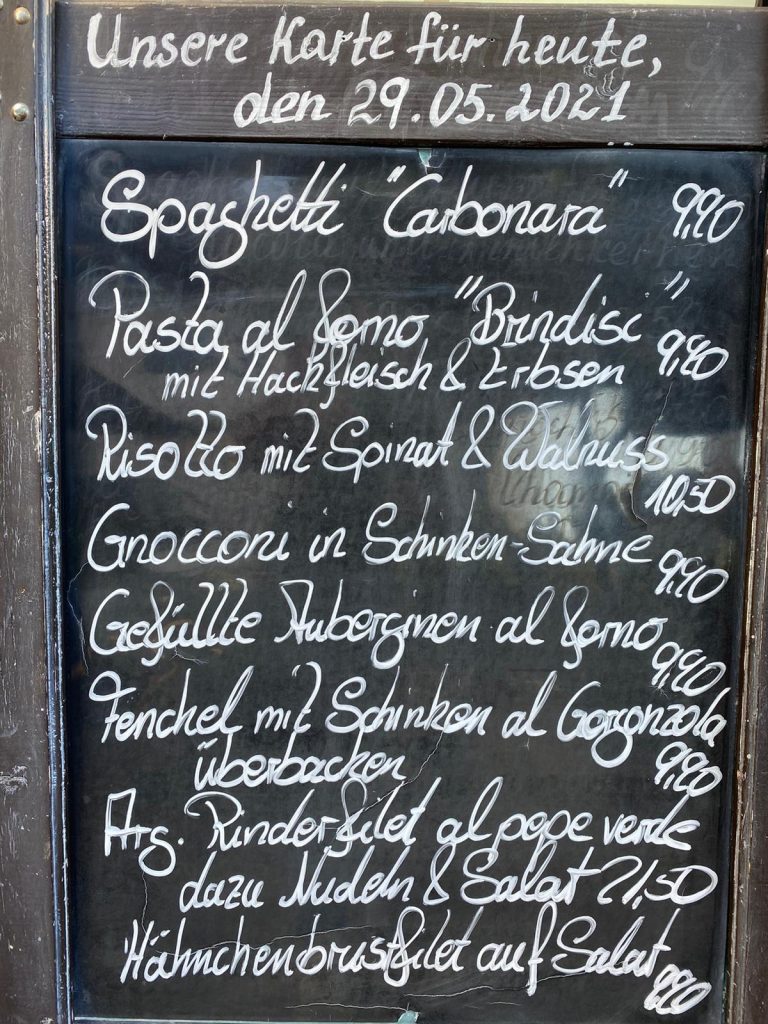 Unsere Karte für heute,
den 29.05.2021
Spaghetti "Carbonara" 9,90
Pasta al forno "Brindisi"
mit Hackfleisch & Erbsen 9,90
Risotto mit Spinat & Walnuss
10,50
Gnocconi in Schinken-Sahne
9,90
Gefüllte Auberginen al forno
9,90
Fenchel mit Schinken al Gorgonzola
überbacken 9,90
Arg. Rinderfilet al pepe verde
dazu Nudeln & Salat 21,50
Hähnchenbrustfilet auf Salat
9,90